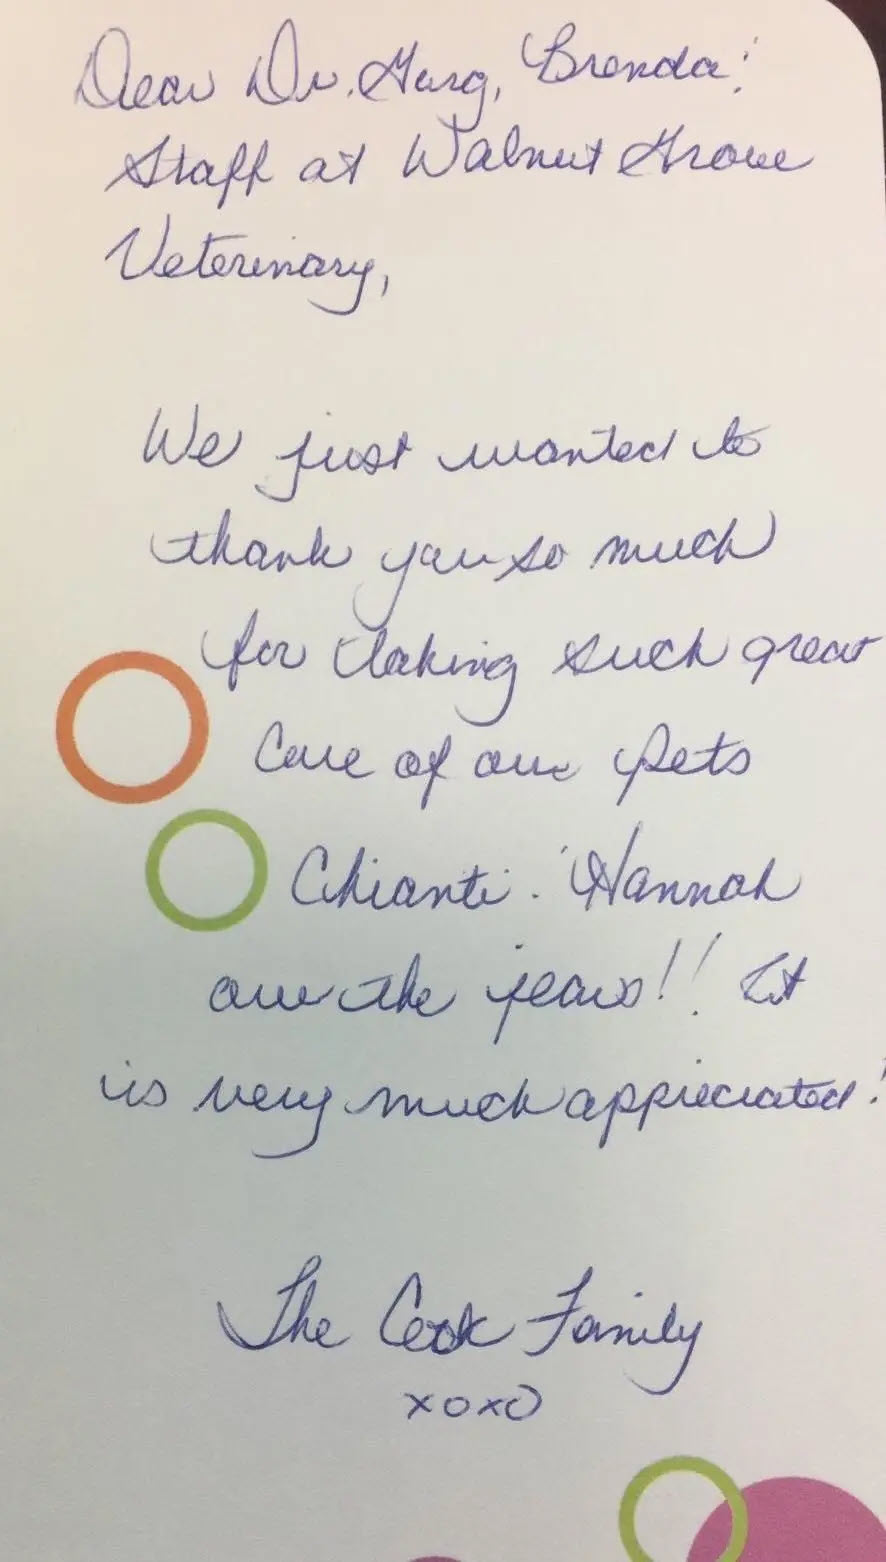 Dear Dr. Garg, Brenda :
Staff at Walnut Grove
Veterinary,
We just wanted to
thank you so much
for taking such great
Care of our pets
Chianti : Hannah
over the years!! It
is very much appreciated!
The Cook Family
xoxo